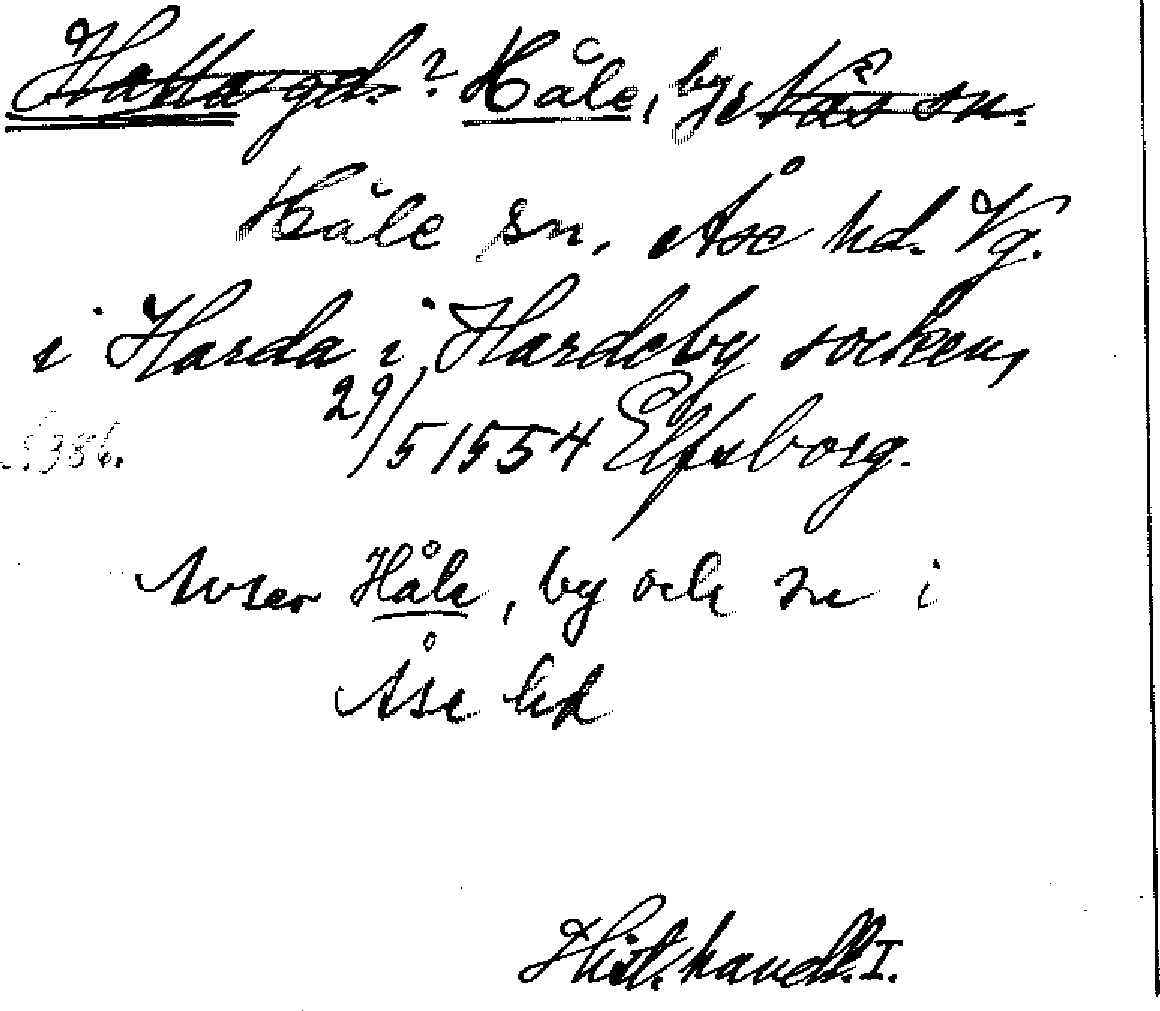 Hatta gd. ? Håle, by, Nås sn.
Håle sn, Åse hd. Vg.
i Harda i Hardeby socken,
s. 386. 29/5 1554 Elfsborg.
Avser Håle, by och sn i
Åse hd
Hist. handl. I.